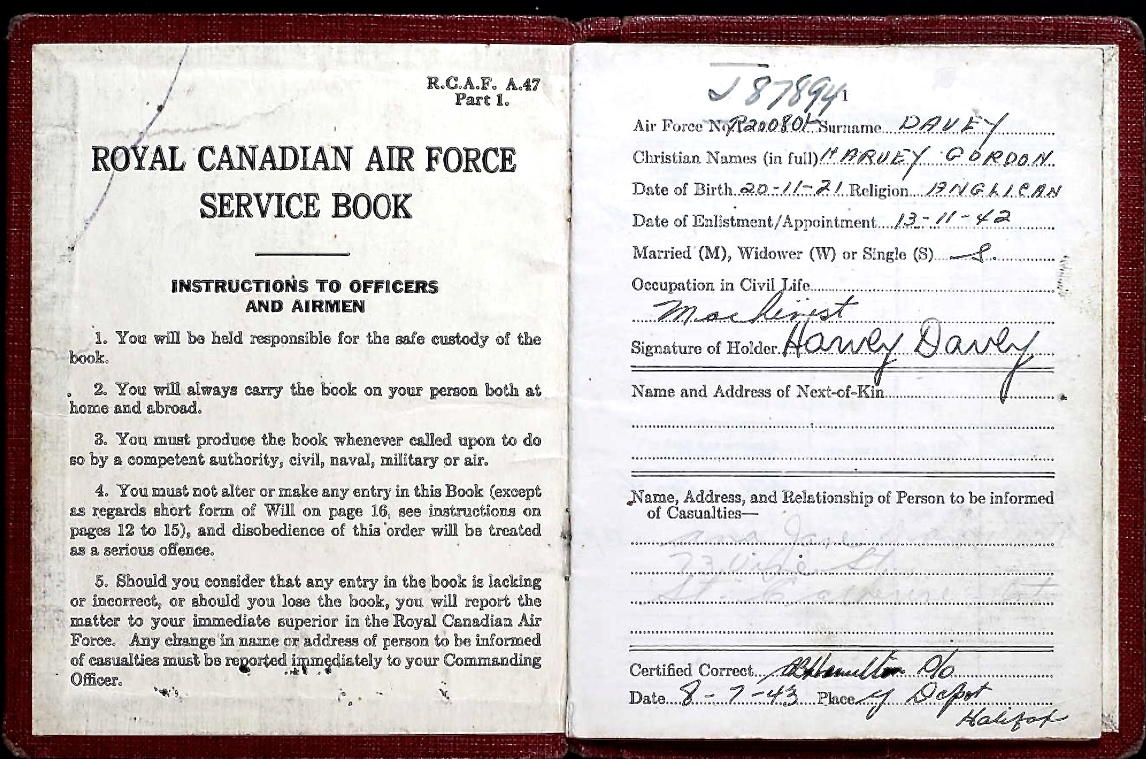 R.C.A.F. A.47
Part 1.
ROYAL CANADIAN AIR FORCE
SERVICE BOOK
INSTRUCTIONS TO OFFICERS
AND AIRMEN
1. You will be held responsible for the safe custody of the
book.
2. You will always carry the book on your person both at
home and abroad.
3. You must produce the book whenever called upon to do
so by a competent authority, civil, naval, military or air.
4. You must not alter or make any entry in this Book (except
as regards short form of Will on page 16, see instructions on
pages 12 to 15), and disobedience of this order will be treated
as a serious offence.
5. Should you consider that any entry in the book is lacking
or incorrect, or should you lose the book, you will report the
matter to your immediate superior in the Royal Canadian Air
Force. Any change in name or address of person to be informed
of casualties must be reported immediately to your Commanding
Officer.
J87894
1
Air Force No. Surname DAVEY
Christian Names (in full) HARVEY GORDON
Date of Birth 20-11-21 Religion ANGLICAN
Date of Enlistment/Appointment 13-11-42
Married (M), Widower (W) or Single (S) S.
Occupation in Civil Life
Machinist
Signature of Holder Harvey Davey
Name and Address of Next-of-Kin
Name, Address, and Relationship of Person to be informed
of Casualties—
Jane
73 Vine St.
St.
Certified Correct Hamilton
Date 8-7-43 Place Y Depot
Halifax